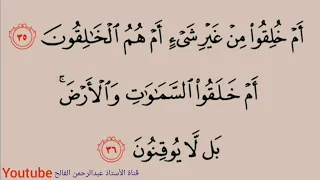 أَمْ خُلِقُوا۟ مِنْ غَيْرِ شَىْءٍ أَمْ هُمُ ٱلْخَـٰلِقُونَ ٣٥
أَمْ خَلَقُوا۟ ٱلسَّمَـٰوَٰتِ وَٱلْأَرْضَ ۚ
بَل لَّا يُوقِنُونَ ٣٦
Youtube قناة الأستاذ عبدالرحمن الفالح